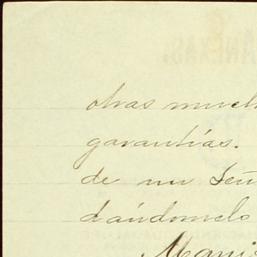 otras much
garantías.
de un Señ
dándomelo